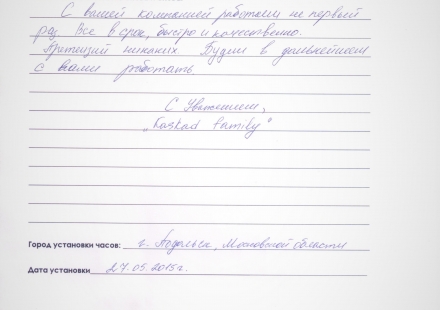 С вашей компанией работаем не первый
раз. Все в срок, быстро и качественно.
Претензий никаких. Будем в дальнейшем
с вами работать
С Уважением,
„Kaskad family"
Город установки часов: г. Подольск, Московской области
Дата установки 27.05.2015г.